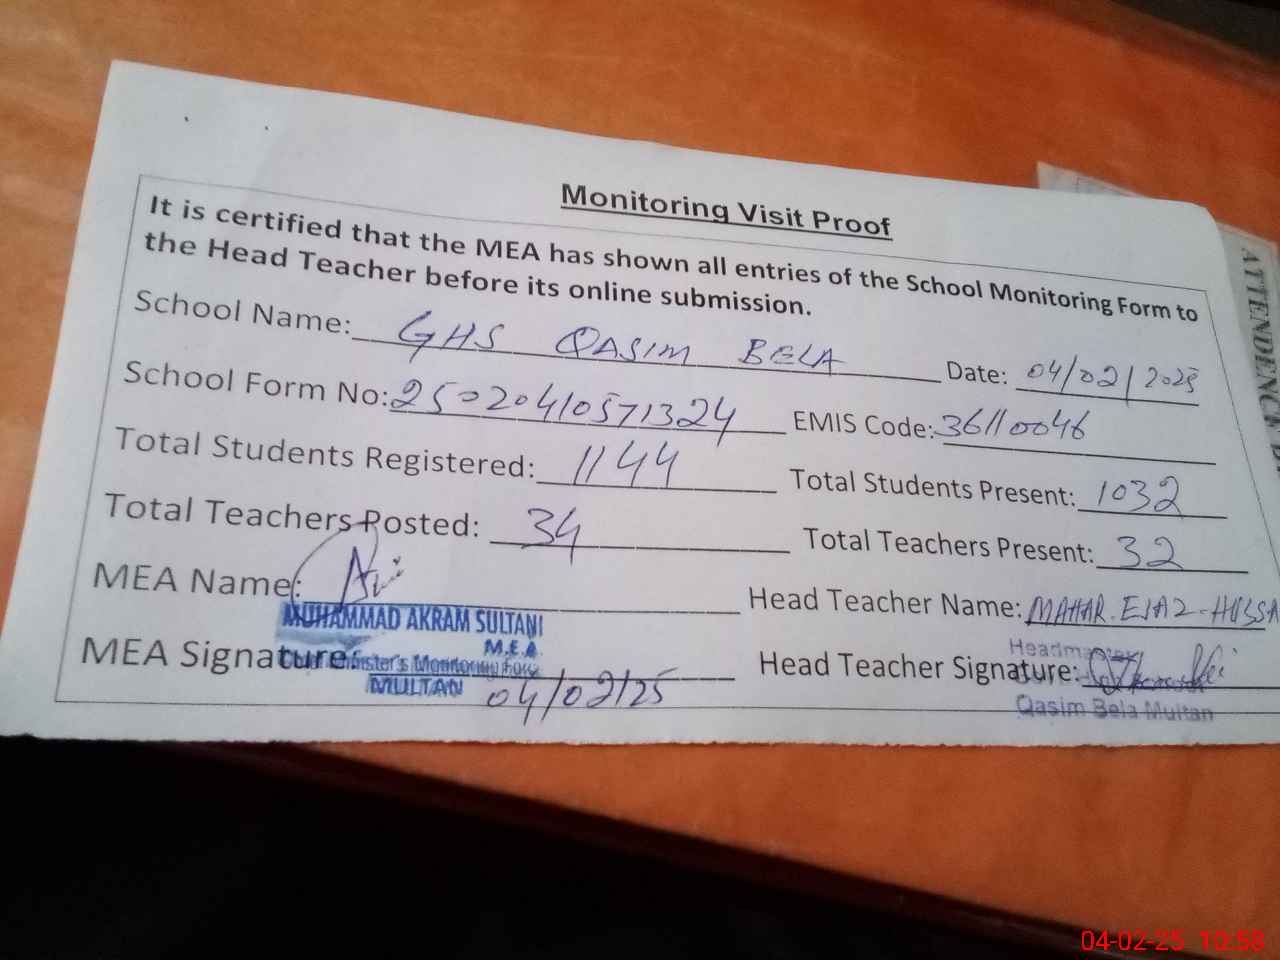 Monitoring Visit Proof
It is certified that the MEA has shown all entries of the School Monitoring Form to
the Head Teacher before its online submission.
School Name: GHS QASIM BELA Date: 04/02/2025
School Form No: 2502041057 1324 EMIS Code: 36110046
Total Students Registered: 1144 Total Students Present: 1032
Total Teachers Posted: 34 Total Teachers Present: 32
MEA Name: Head Teacher Name: MAHAR. EJAZ-HUSSA
MUHAMMAD AKRAM SULTANI
M.E.A
MEA Signature: Monitoring Force Head Teacher Signature:
MULTAN 04/02/25
Qasim Bela Multan
ATTENDENCE
04-02-25 10:58